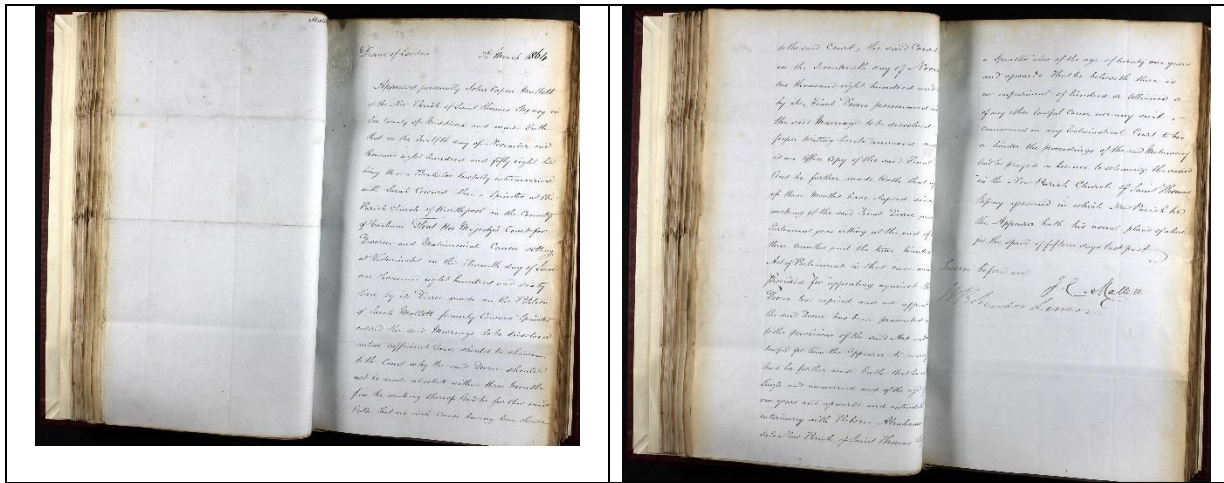 Mall
Diocese of London 3rd March 1864
Appeared personally John Capes Mallett
of the New Parish of Saint Thomas Stepney in
the County of Middlesex and made Oath
that on the Twelfth day of November one
thousand eight hundred and fifty eight he
being then a Bachelor lawfully intermarried
with Sarah Coward then a Spinster at the
Parish Church of Hartlepool in the County
of Durham That Her Majesty's Court for
Divorce and Matrimonial Causes sitting
at Westminster on the eleventh day of June
one thousand eight hundred and sixty
three by its Decree made on the Petition
of Sarah Mallett formerly Coward Spinster
ordered the said Marriage to be dissolved
unless sufficient Cause should be shewn
to the Court why the said Decree should
not be made absolute within three Months
from the making thereof And he further made
Oath that no such Cause having been shewn
to the said Court, the said Court
on the Seventeenth day of Novem
one thousand eight hundred and
by its Final Decree pronounced
the said Marriage to be dissolved
paper writing hereto annexed
is an Office Copy of the said Final
And he further made Oath that
of three Months have elapsed since
making of the said Final Decree and
Parliament was sitting at the end of
three months and the time limited
Act of Parliament in that case
provided for appealing against the
Decree has expired and no appeal
the said Decree has been presented
to the provisions of the said Act and
lawful for him the Appearer to marry
And he further made Oath that he is
Single and unmarried and of the age of
one years and upwards and intendeth
intermarry with Rebecca Abrahams
said New Parish of Saint Thomas
a Spinster also of the age of twenty one years
and upwards That he believeth there is
no impediment of kindred or Alliance or
of any other lawful Cause nor any suit
commenced in any Ecclesiastical Court to bar
or hinder the proceedings of the said Matrimony
And he prayed a Licence to solemnize the same
in the New Parish Church of Saint Thomas
Stepney aforesaid in which New Parish he
the Appearer hath his usual place of abode
for the space of fifteen days last past
Sworn before me
J C Mallett